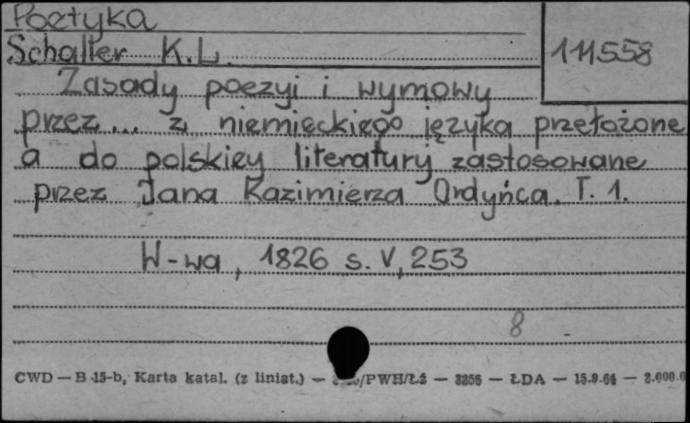 Poetyka
Schaller K. L.
111558
Zasady poezyi i wymowy
przez... z niemieckiego języka przełożone
a do polskiey literatury zastosowane
przez Jana Kazimierza Ordyńca. T. 1.
W-wa, 1826 s. V, 253
8
CWD — B 15-b, Karta katal. (z liniat.) — /PWH/ŁŻ — 3256 — ŁDA — 15.9.64 —